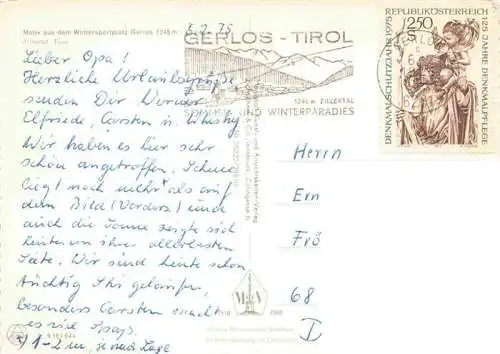 Motiv aus dem Wintersportplatz Gerlos 1246 m
Zillertal Tirol
5.2.75
Lieber Opa!
Herzliche Urlaubsgrüße
senden Dir Werner
Elfriede, Carsten u. Whisky
Wir haben es hier sehr
schön angetroffen. Schnee
liegt noch mehr als auf
dem Bild (Vorders.) und
auch die Sonne zeigte sich
heute von ihrer allerbesten
Seite. Wir sind heute schon
tüchtig Ski gelaufen,
besonders Carsten macht
es viel Spaß.
1-2 m, je nach Lage
GERLOS - TIROL
1246 m ZILLERTAL
SOMMER- UND WINTERPARADIES
REPUBLIK ÖSTERREICH
2.50
S
DENKMALSCHUTZJAHR 1975
125 JAHRE DENKMALPFLEGE
Herrn
Ern
Frö
68
I